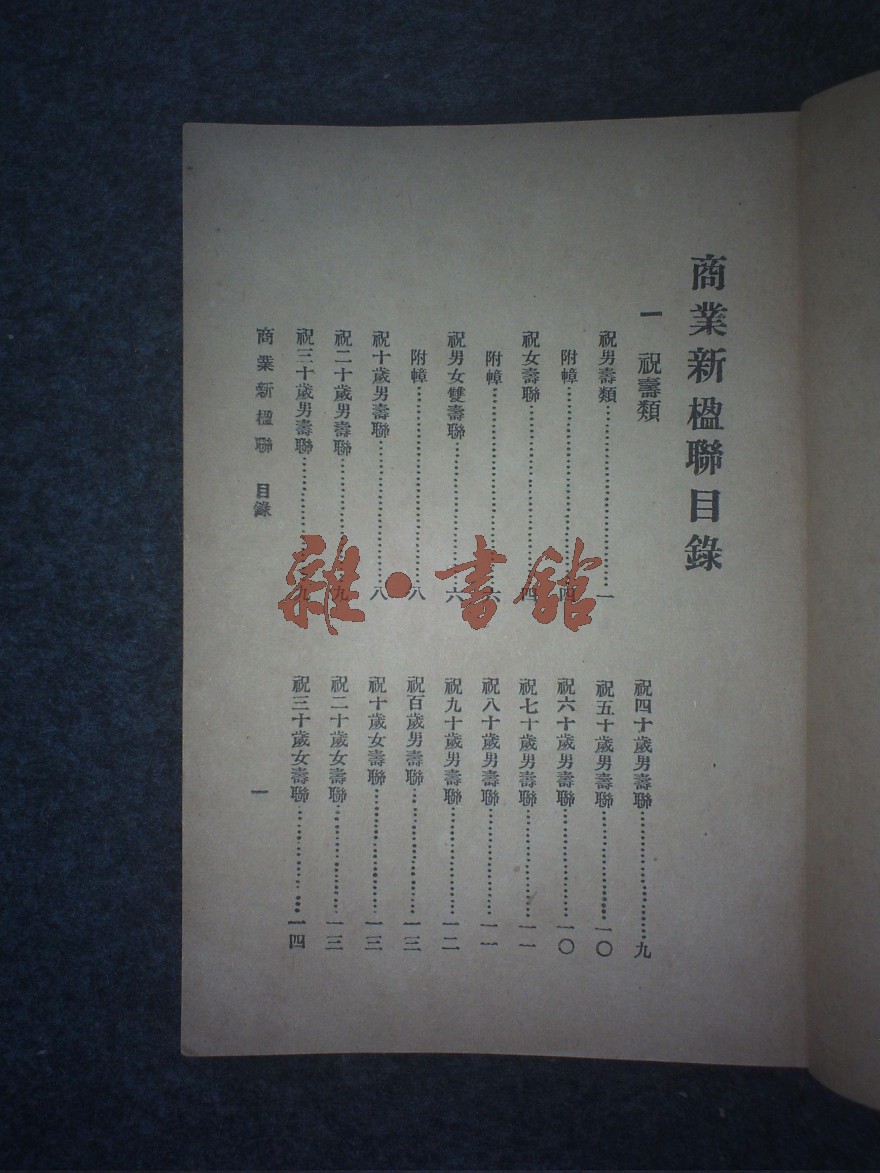 商業新楹聯目錄
一 祝壽類
祝男壽類……一
附幛……四
祝女壽聯……四
附幛……六
祝男女雙壽聯……六
附幛……八
祝十歲男壽聯……八
祝二十歲男壽聯……九
祝三十歲男壽聯……九
祝四十歲男壽聯……九
祝五十歲男壽聯……一〇
祝六十歲男壽聯……一〇
祝七十歲男壽聯……一一
祝八十歲男壽聯……一一
祝九十歲男壽聯……一二
祝百歲男壽聯……一三
祝十歲女壽聯……一三
祝二十歲女壽聯……一三
祝三十歲女壽聯……一四
商業新楹聯 目錄
一
雜·書館